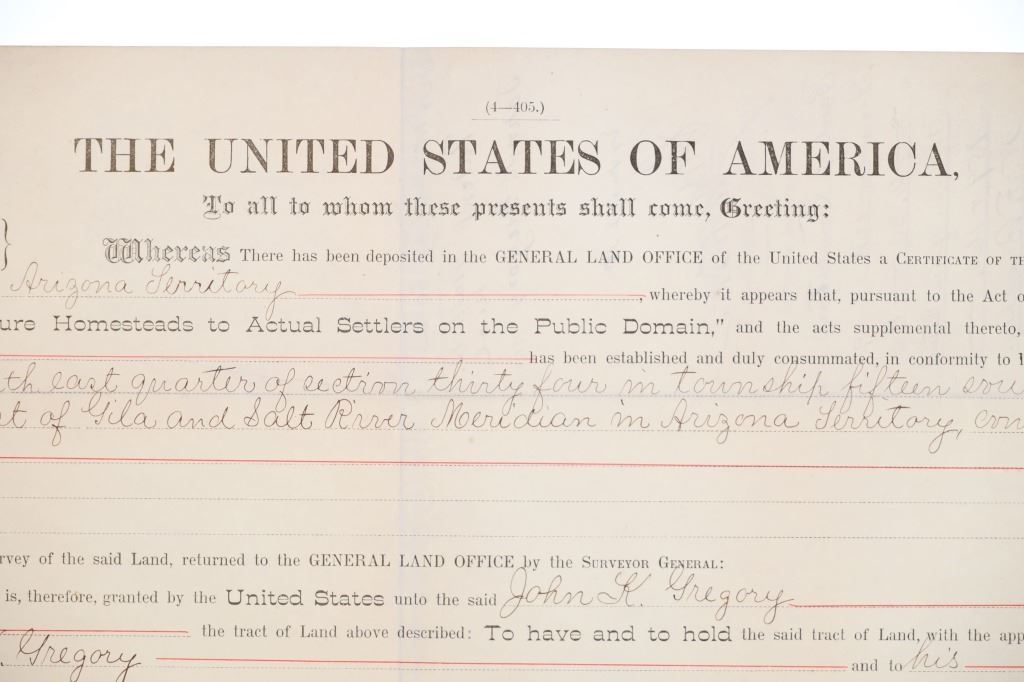 (4—405.)
THE UNITED STATES OF AMERICA,
To all to whom these presents shall come, Greeting:
Whereas There has been deposited in the GENERAL LAND OFFICE of the United States a CERTIFICATE OF TH
Arizona Territory, whereby it appears that, pursuant to the Act o
ure Homesteads to Actual Settlers on the Public Domain," and the acts supplemental thereto,
has been established and duly consummated, in conformity to l
th east quarter of section thirty four in township fifteen sou
t of Gila and Salt River Meridian in Arizona Territory, con
rvey of the said Land, returned to the GENERAL LAND OFFICE by the SURVEYOR GENERAL:
is, therefore, granted by the United States unto the said John K. Gregory
the tract of Land above described: To have and to hold the said tract of Land, with the app
. Gregory and to his